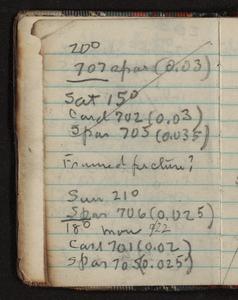 20°
707 spar (0.03)
Sat 15°
Card 702 (0.03)
Spar 705 (0.035)
Framed picture?
Sun 21°
Spar 706 (0.025)
18° mon 922
Card 701 (0.02)
Spar 705 (0.025)